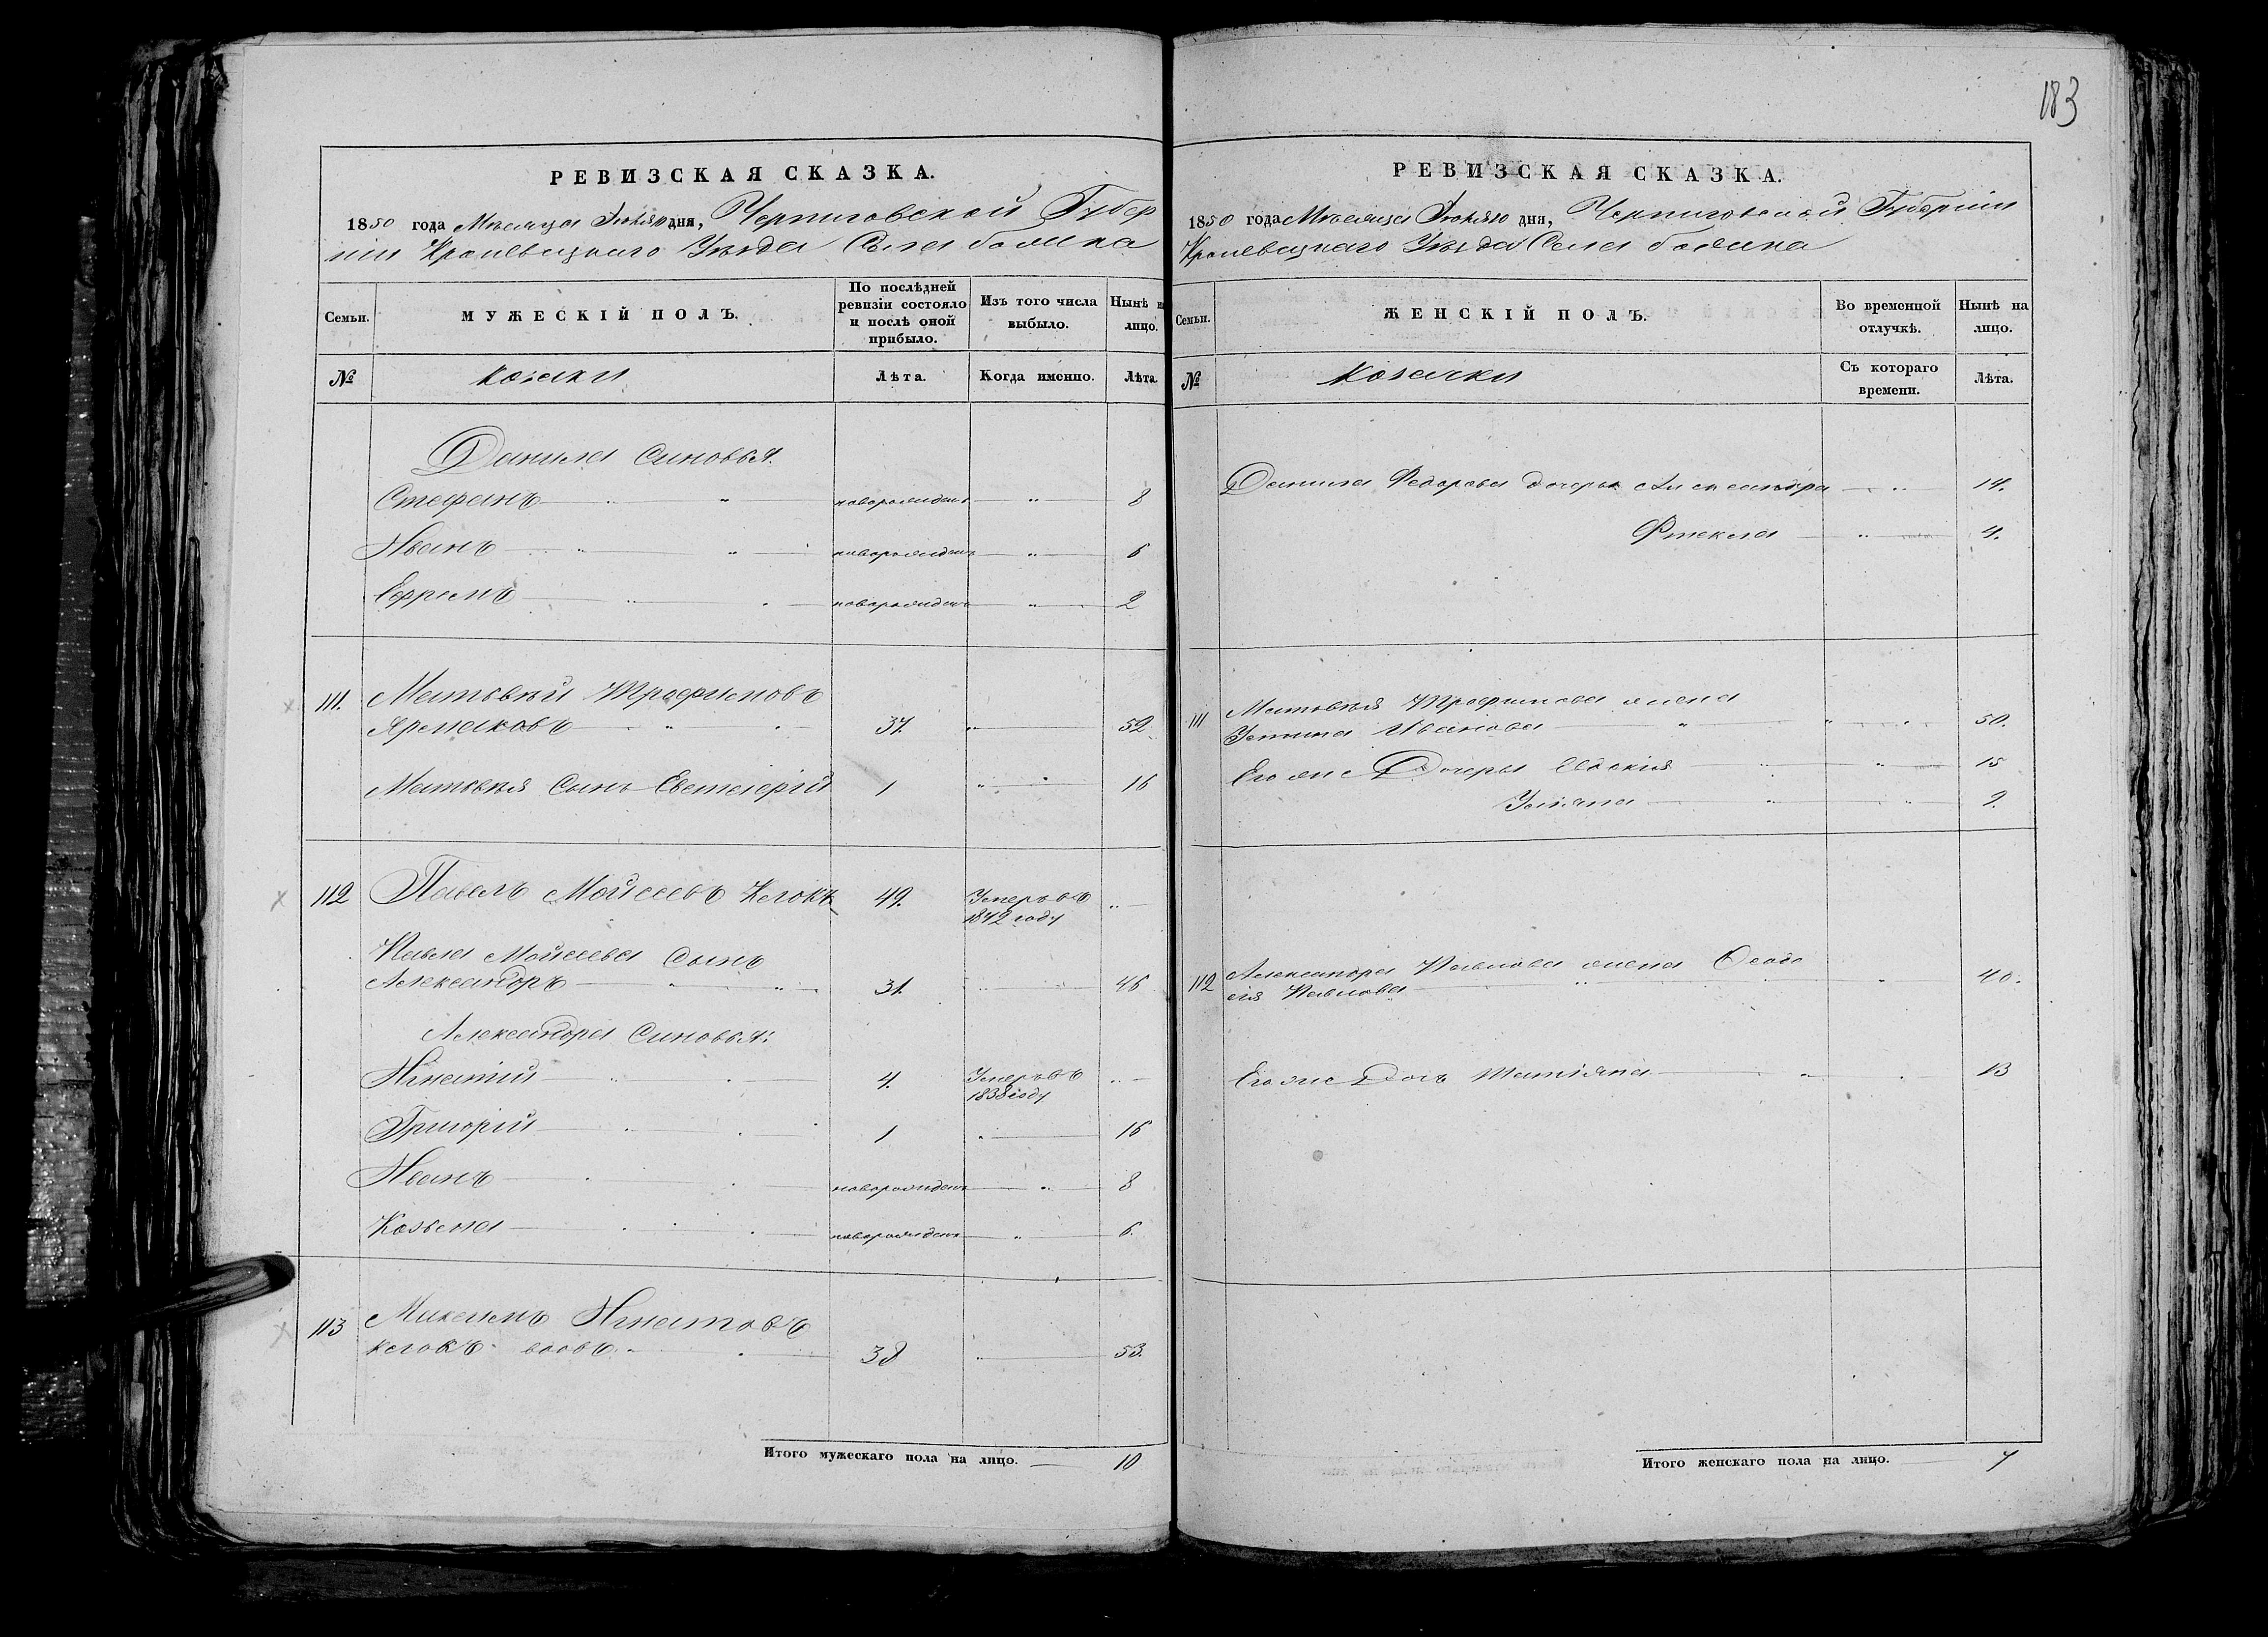 183
РЕВИЗСКАЯ СКАЗКА.
1850 года Месяца дня, Черниговской Губер
ніи Кролевецкаго Уезда Села
Семьи.
МУЖЕСКІЙ ПОЛЪ.
По послѣдней ревизіи состояло и послѣ оной прибыло.
Изъ того числа выбыло.
Нынѣ н лицо.
№
козаки
Лѣта.
Когда именно.
Лѣта.
Данила Синовья.
Стефанъ новорожденъ " 8
Иванъ новорожденъ " 6
Ефремъ новорожденъ " 2
111. Матвѣй Трофимовъ
Ярмаковъ 37. " 52.
Матвѣя Сынъ Евстегрій 1 " 16
112 Павелъ Мойсеевъ 49. Умеръ въ
1842 году
Павла Мойсеева Сынъ
Александръ 31. 46
Александра Синовья:
Игнатій 4. Умеръ въ
1838 году
Григорій 1 " 16
Иванъ новорожденъ " 8
Козьма новорожденъ " 6.
113 Игнатовъ
38 " 53.
Итого мужескаго пола на лицо. 10
РЕВИЗСКАЯ СКАЗКА.
1850 года Месяца дня, Черниговской Губерніи
Кролевецкаго Уезда Села
Семьи.
ЖЕНСКІЙ ПОЛЪ.
Во временной отлучкѣ.
Нынѣ на лицо.
№
козачки
Съ котораго времени.
Лѣта.
Данила Федорова дочеры Александра 14.
Фтекла " 4.
111 Матвѣя Трофимова жена
Устина Иванова " 50.
Его же Дочеры Евдокія " 15
Уліяна " 9.
112 Александра Павлова жена Феодо
сія Павлова " 40.
Его же Дочь Татіяна " 13
Итого женскаго пола на лицо. 7